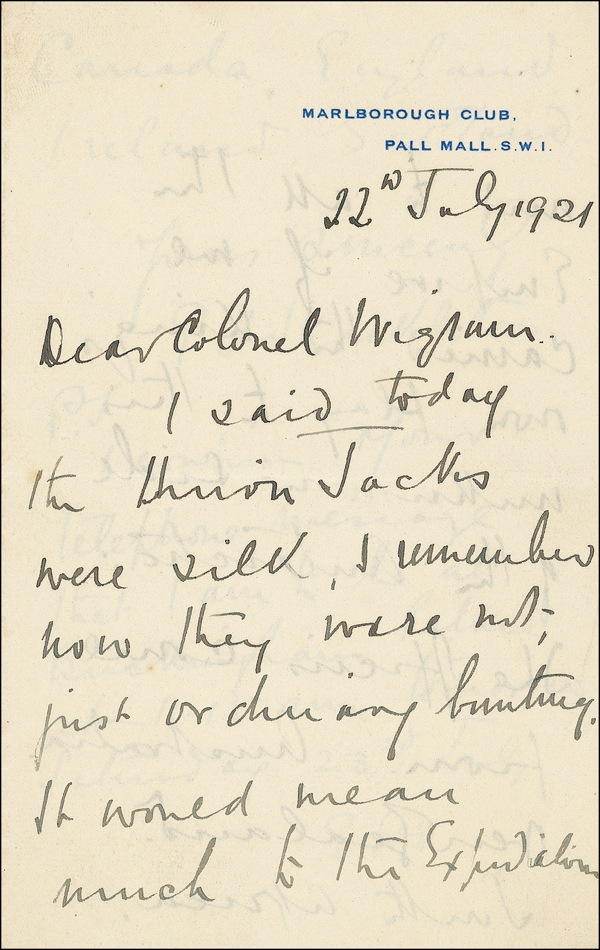 MARLBOROUGH CLUB,
PALL MALL.S.W.1.
22nd July 1921
Dear Colonel Wigram.
I said today
the Union Jacks
were silk, I remember
now they were not,
just ordinary bunting.
It would mean
much to the Expedition